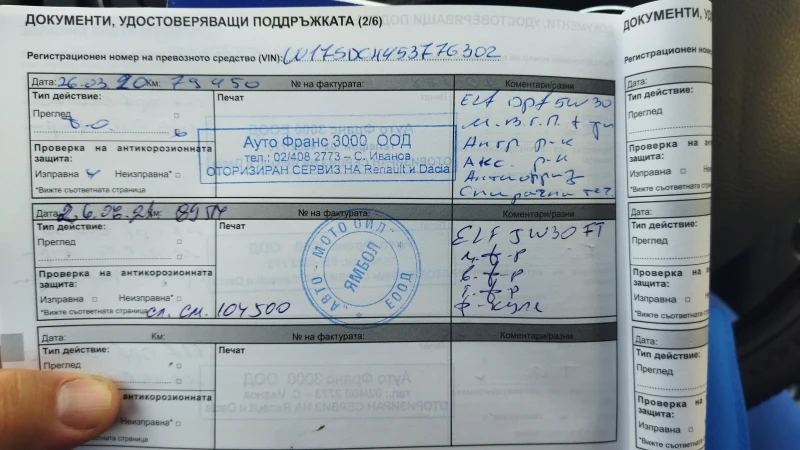 ДОКУМЕНТИ, УДОСТОВЕРЯВАЩИ ПОДДРЪЖКАТА (2/6)
Регистрационен номер на превозното средство (VIN):
Дата: 26.03.20 Км: 79450 № на фактурата: Коментари/разни
Тип действие: Печат
Преглед
Проверка на антикорозионната защита:
Изправна Неизправна*
*Вижте съответната страница
Ауто Франс 3000 ООД
тел.: 02/408 2773 – С. Иванова
ОТОРИЗИРАН СЕРВИЗ НА Renault и Dacia
ELF 5W30
Антифриз
Дата: № на фактурата: Коментари/разни
Тип действие: Печат
Преглед
Проверка на антикорозионната защита:
Изправна Неизправна*
*Вижте съответната страница сл. см. 104500
"АВТО - МОТО ОИЛ" ЕООД
ЯМБОЛ
ELF 5W30
м. ф-р
в. ф-р
г. ф-р
ф-купе
Дата: Км: № на фактурата: Коментари/разни
Тип действие: Печат
Преглед
антикорозионната
Неизправна*
съответната страница
ДОКУМЕНТИ,
Регистрационен номер
Дата:
Тип действие:
Преглед
Проверка на
защита:
Изправна
*Вижте съответната
Дата:
Тип действие:
Преглед
Проверка на
защита:
Изправна
*Вижте съответната
Дата:
Тип действие:
Преглед
Проверка на
защита:
Изправна
*Вижте съответната